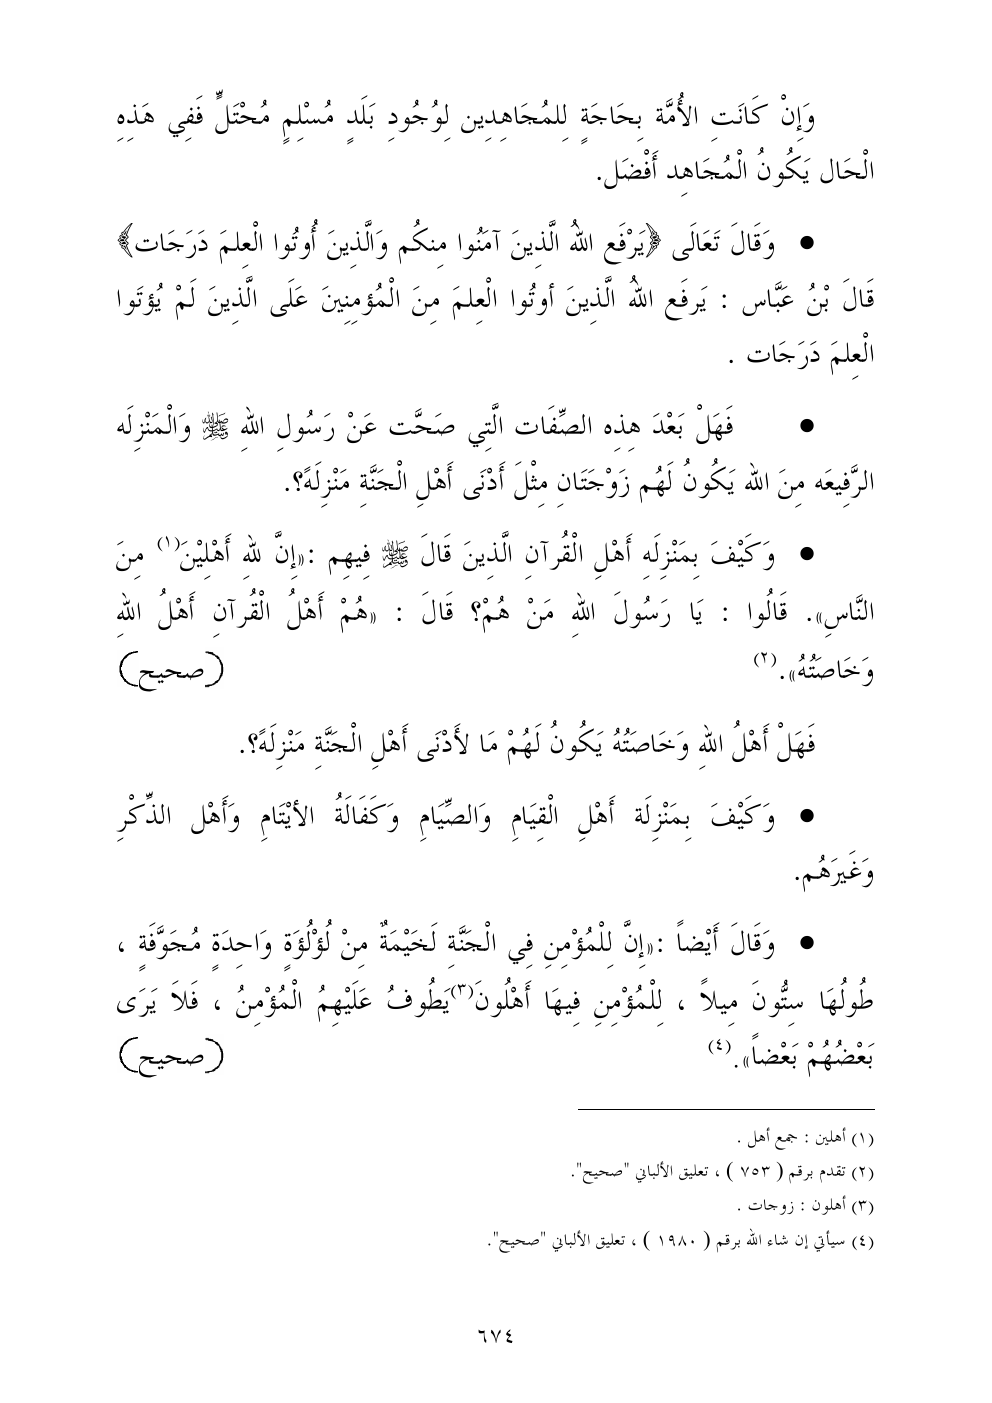 وَإِنْ كَانَتِ الأُمَّة بِحَاجَةٍ لِلمُجَاهِدِين لِوُجُودِ بَلَدٍ مُسْلِمٍ مُحْتَلٍّ فَفِي هَذِهِ
الْحَال يَكُونُ الْمُجَاهِد أَفْضَل.
● وَقَالَ تَعَالَى ﴿يَرْفَعِ اللهُ الَّذِينَ آمَنُوا مِنكُم وَالَّذِينَ أُوتُوا الْعِلمَ دَرَجَات﴾
قَالَ بْنُ عَبَّاس : يَرفَع اللهُ الَّذِينَ أوتُوا الْعِلمَ مِنَ الْمُؤمِنِينَ عَلَى الَّذِينَ لَمْ يُؤتَوا
الْعِلمَ دَرَجَات .
● فَهَلْ بَعْدَ هِذِه الصِّفَات الَّتِي صَحَّت عَنْ رَسُولِ اللهِ ﷺ وَالْمَنْزِلَه
الرَّفِيعَه مِنَ الله يَكُونُ لَهُم زَوْجَتَانِ مِثْلَ أَدْنَى أَهْلِ الْجَنَّةِ مَنْزِلَةً؟.
● وَكَيْفَ بِمَنْزِلَهِ أَهْلِ الْقُرآنِ الَّذِينَ قَالَ ﷺ فِيهِم :«إِنَّ للهِ أَهْلِيْنَ(١) مِنَ
النَّاسِ». قَالُوا : يَا رَسُولَ اللهِ مَنْ هُمْ؟ قَالَ : «هُمْ أَهْلُ الْقُرآنِ أَهْلُ اللهِ
وَخَاصَتُهُ».(٢) (صحيح)
فَهَلْ أَهْلُ اللهِ وَخَاصَتُهُ يَكُونُ لَهُمْ مَا لأَدْنَى أَهْلِ الْجَنَّةِ مَنْزِلَةً؟.
● وَكَيْفَ بِمَنْزِلَة أَهْلِ الْقِيَامِ وَالصِّيَامِ وَكَفَالَةُ الأيْتَامِ وَأَهْل الذِّكْرِ
وَغَيرَهُم.
● وَقَالَ أَيْضاً :«إِنَّ لِلْمُؤْمِنِ فِي الْجَنَّةِ لَخَيْمَةٌ مِنْ لُؤْلُؤَةٍ وَاحِدَةٍ مُجَوَّفَةٍ ،
طُولُهَا سِتُّونَ مِيلاً ، لِلْمُؤْمِنِ فِيهَا أَهْلُونَ(٣)يَطُوفُ عَلَيْهِمُ الْمُؤْمِنُ ، فَلاَ يَرَى
بَعْضُهُمْ بَعْضاً».(٤) (صحيح)
(١) أهلين : جمع أهل .
(٢) تقدم برقم ( ٧٥٣ ) ، تعليق الألباني "صحيح".
(٣) أهلون : زوجات .
(٤) سيأتي إن شاء الله برقم ( ١٩٨٠ ) ، تعليق الألباني "صحيح".
٦٧٤